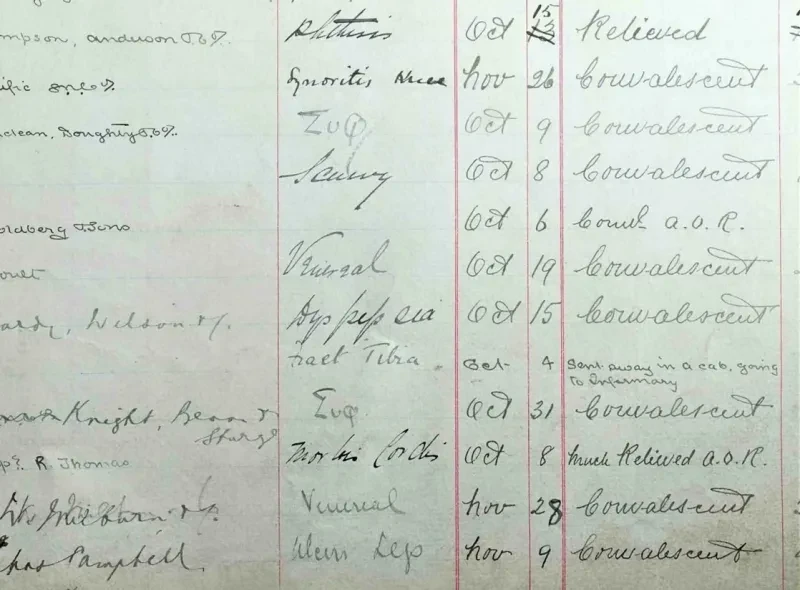 mpson, anderson & Co. Phthisis Oct 15 23 Relieved
ific S.N.Co. Synovitis Knee Nov 26 Convalescent
clean, Doughty & Co. Συφ Oct 9 Convalescent
Scurvy Oct 8 Convalescent
oldberg & Sons Oct 6 a.O.R.
Venereal Oct 19 Convalescent
ardy, Wilson & Co. Dyspepsia Oct 15 Convalescent
Fract Tibia Oct 4 Sent away in a cab, going
to Infirmary
Knight, Συφ Oct 31 Convalescent
R. Thomas Morbis Cordis Oct 8 Much Relieved a.O.R.
Venereal Nov 28 Convalescent
has Campbell. Ulcers Legs Nov 9 Convalescent